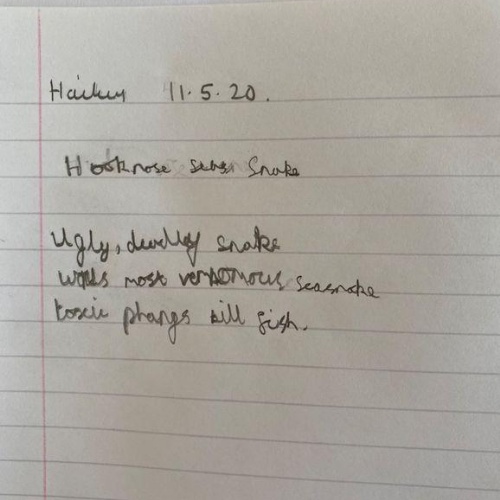 Haikus 11.5.20.
Hooknose seas Snake
Ugly, deadly snake
worlds most vernomous seasnake
toxic phangs kill fish.